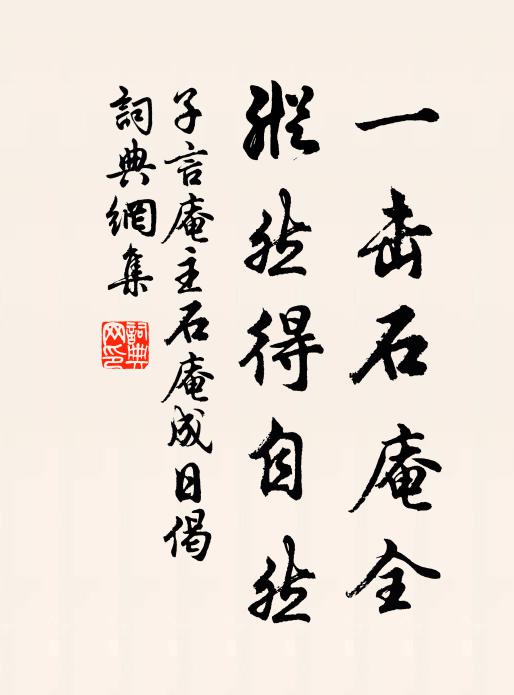 一击石庵全
縱然得自然
子言庵主石庵成日偈
詞典網集
詞典网印